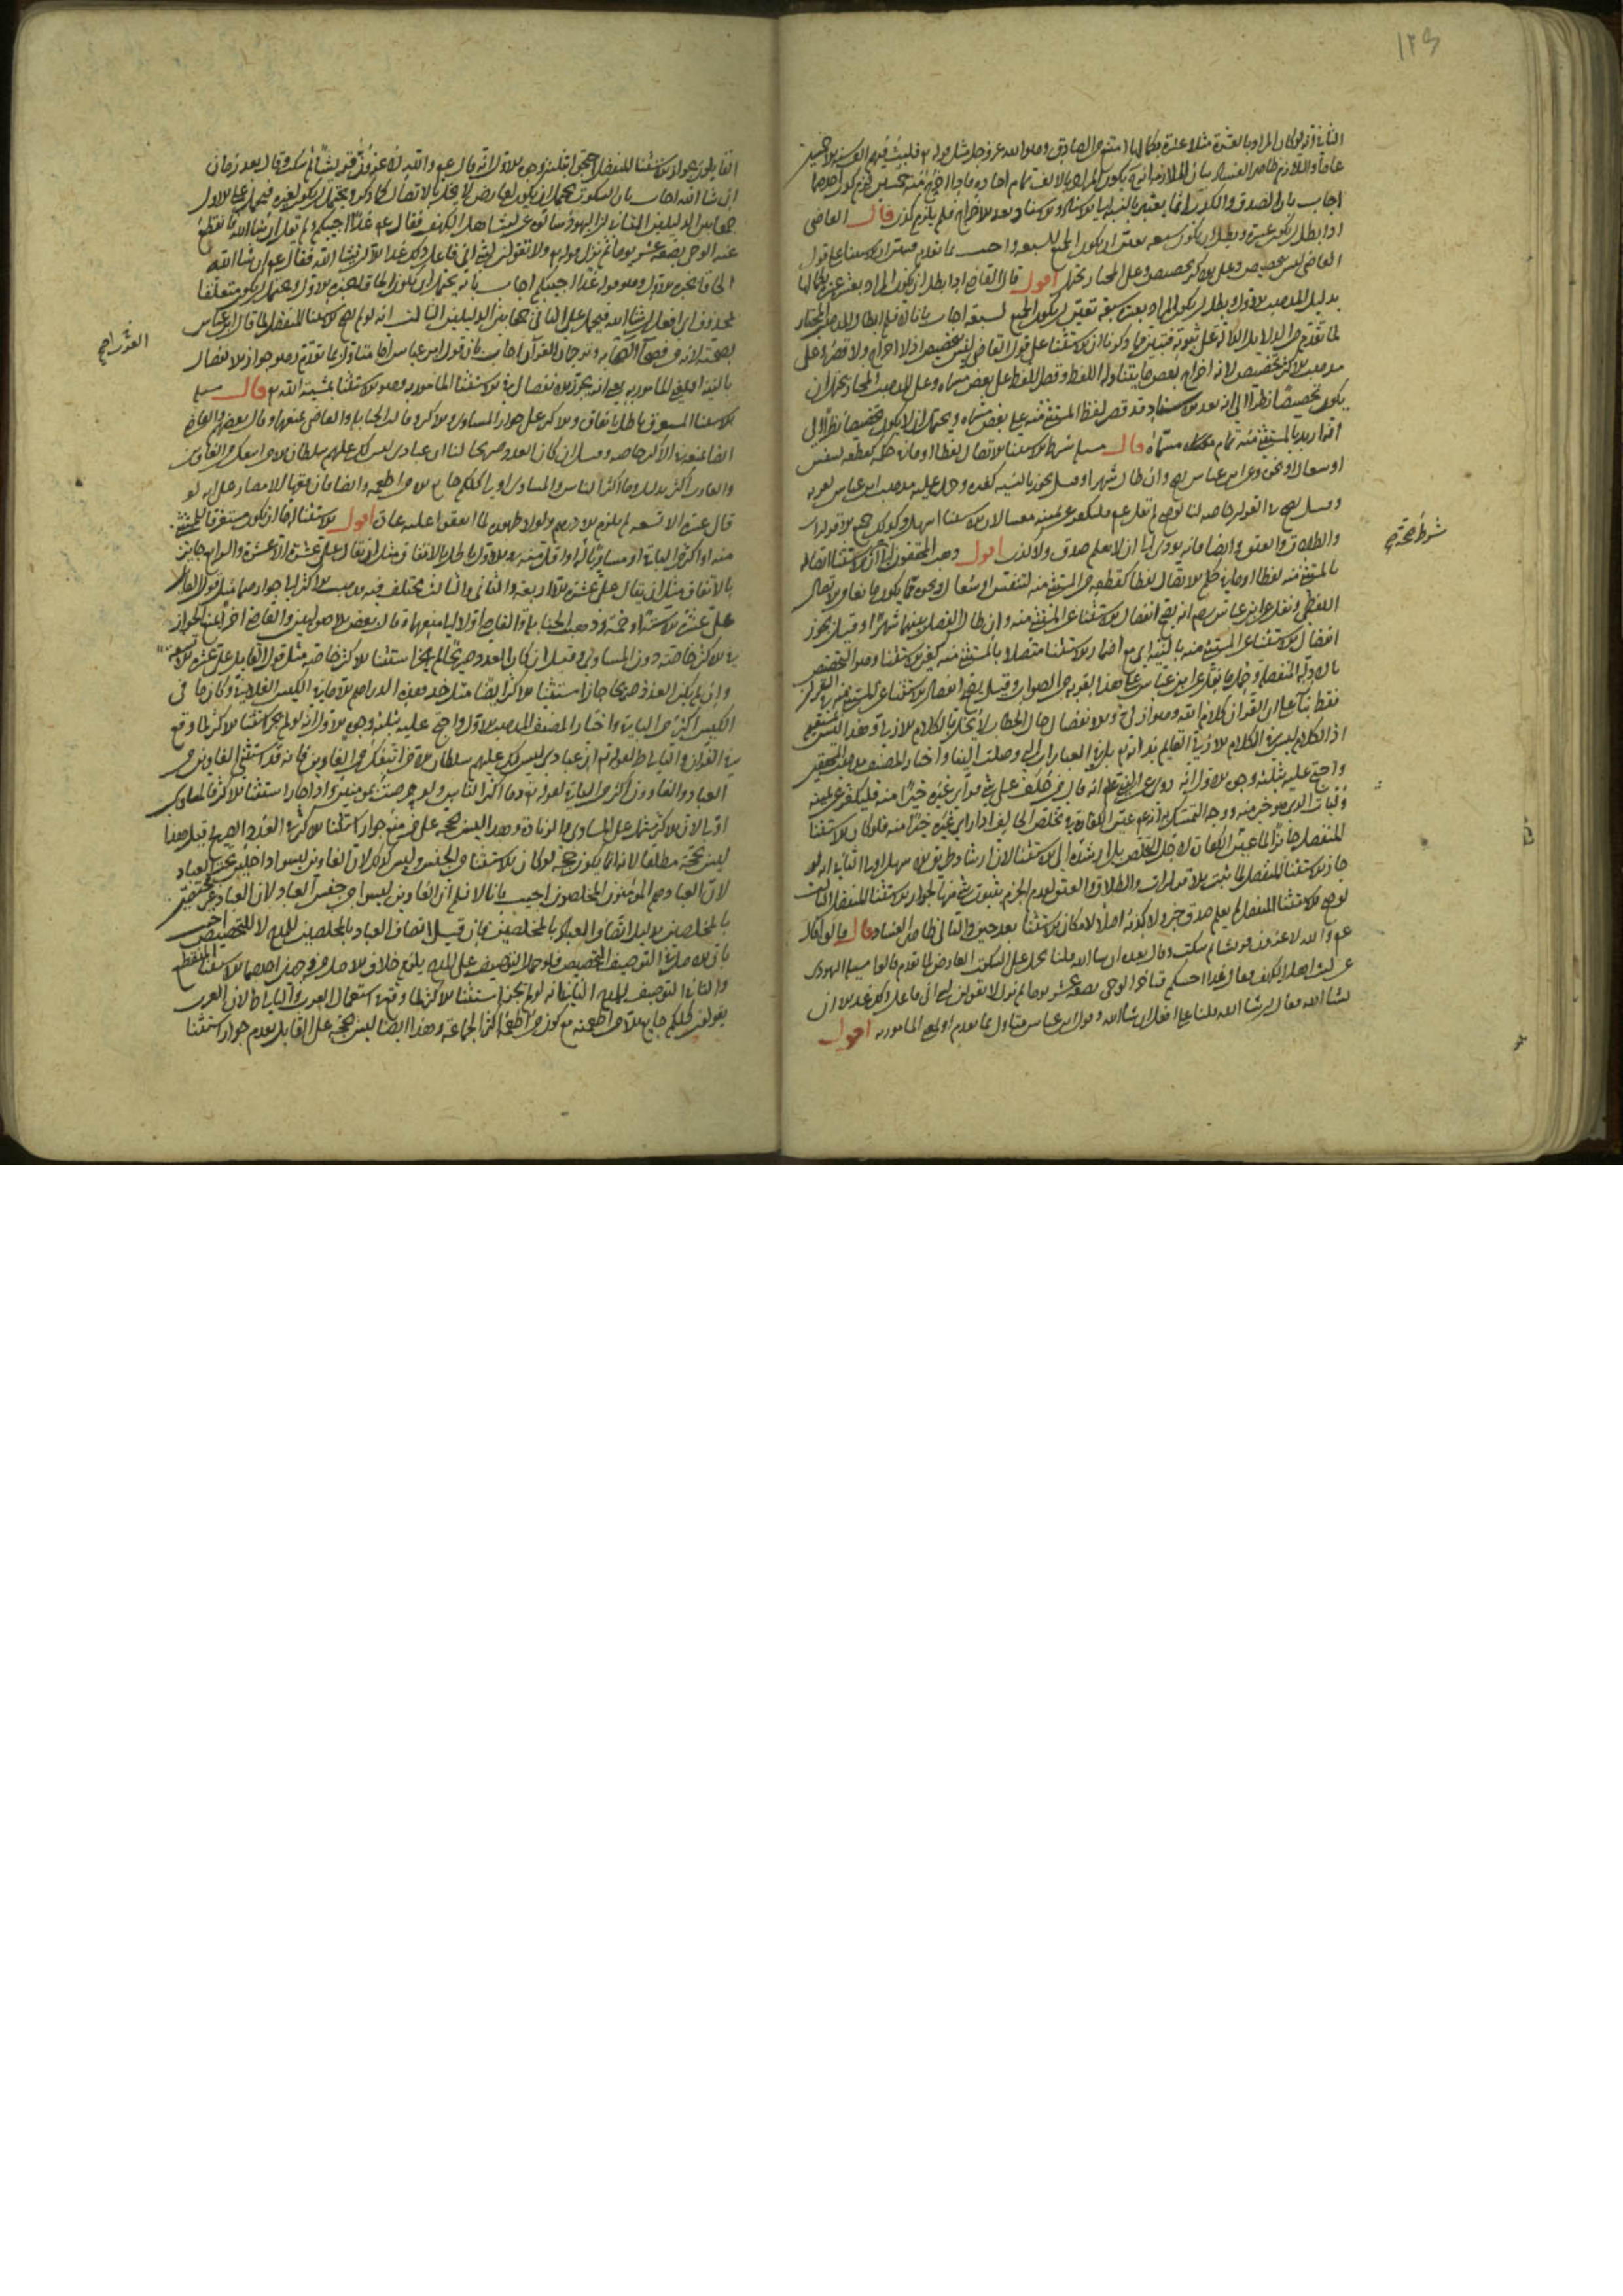 ١٢٥
الثاني انه لو كان المراد بالعشرة مثلا عشرة بكمالها امتنع من الصادق وهو الله عز وجل مثل قوله فلبث فيهم الف سنة الا خمسين
عاما واللازم ظاهر الفساد بيان الملازمة انه يكون المراد بالالف تمام احاده فاذا اخرج منه خمسين لزم كذب احدهما
اجاب بان الصدق والكذب انما يعتبر بالنسبة الى الاسناد والاسناد بعد الاخراج فلم يلزم كذب قال القاضي
اذا بطل ان يكون عشرة وبطل ان يكون سبعة تعين ان يكون الجميع لسبعة واجيب بما تقدم فتبين ان الاستثناء على قول
القاضي ليس بتخصيص وعلى الاكثر تخصيص وعلى المختار محتمل اقول قال القاضي اذا بطل ان يكون المراد بعشرة عشرة بكمالها
بدليل المذهب الاول وبطل ان يكون المراد بعشرة سبعة تعين ان يكون الجميع لسبعة اجاب بانا لا نسلم ابطال المذهب المختار
لما تقدم من الدلالة على ثبوته فتبين مما ذكرنا ان الاستثناء على قول القاضي ليس بتخصيص اذ لا اخراج ولا قصر وعلى
مذهب الاكثر تخصيص لانه اخراج بعض ما يتناوله اللفظ وقصر اللفظ على بعض مسماه وعلى المذهب المختار يحتمل ان
يكون تخصيصا نظرا الى انه بعد الاسناد قد قصر لفظ المستثنى منه على بعض مسماه ويحتمل ان لا يكون تخصيصا نظرا الى
انه اريد بالمستثنى منه تمام مسماه قال مسئلة شرط الاستثناء الاتصال لفظا او ما في حكمه كقطعه لتنفس
او سعال او نحوه وعن ابن عباس يصح وان طال شهرا وقيل يجوز بالنية كغيره وحمل عليه مذهب ابن عباس لقربه
وقيل يصح في القرآن خاصة لنا لو صح لم يقل عم فليكفر عن يمينه معينا لان الاستثناء اسهل وكذلك جميع الاقرارات
والطلاق والعتق وايضا فانه يؤدي الى ان لا يعلم صدق ولا كذب اقول ذهب المحققون الى ان شرط الاستثناء اتصاله
بالمستثنى منه لفظا او ما في حكم الاتصال لفظا كقطعه عن المستثنى منه لتنفس او سعال او نحوه مما يكون مانعا من الاتصال
اللفظي ونقل عن ابن عباس رضه انه يصح انفصال الاستثناء عن المستثنى منه وان طال الفصل بينهما شهرا وقيل يجوز
انفصال الاستثناء عن المستثنى منه بالنية اي مع اضمار الاستثناء متصلا بالمستثنى منه كغير الاستثناء وهو التخصيص
بالادلة المنفصلة وحمل ما نقل عن ابن عباس على هذا لقربه من الصواب وقيل يصح انفصال الاستثناء عن المستثنى منه في القرآن
فقط بناء على ان القرآن كلام الله وهو ازلي والانفصال حال الخطاب لا يخل بالكلام الازلي وهذا ليس بمستقيم
اذ الكلام ليس في الكلام الازلي القائم بذاته بل في العبارات التي وصلت الينا واختار المصنف مذهب المحققين
واحتج عليه بثلثة وجوه الاول انه روي عن النبي عم انه قال من حلف على شيء فرأى غيره خيرا منه فليكفر عن يمينه
وليأت الذي هو خير منه ووجه التمسك به انه عم عين الكفارة في تخلص الحالف اذا رأى غيره خيرا منه فلو كان الاستثناء
المنفصل جائزا لما عين الكفارة لاجل التخلص بل ارشده الى الاستثناء لان ارشاد طريق الاسهل اولى الثاني انه لو
جاز الاستثناء المنفصل لما ثبت الاقرارات والطلاق والعتق لعدم الجزم بثبوت شيء منها لجواز الاستثناء المنفصل الثالث
لو صح الاستثناء المنفصل لم يعلم صدق خبر ولا كذبه اصلا لامكان الاستثناء بعد حين والتالي ظاهر الفساد قال قالوا قال
عم والله لاغزون قريشا ثم سكت وقال بعده ان شاء الله قلنا يحمل على السكوت العارض لما تقدم قالوا سأله اليهود
عن لبث اهل الكهف فقال غدا اجيبكم فتاخر الوحي بضعة عشر يوما ثم نزل ولا تقولن لشيء اني فاعل ذلك غدا الا ان
يشاء الله فقال ان شاء الله قلنا على افعل ان شاء الله وقول ابن عباس متاول بما تقدم او بمعنى المامور به اقول
شرط صحته
القائلون بجواز الاستثناء المنفصل احتجوا بثلثة وجوه الاول انه قال عم والله لاغزون قريشا ثم سكت وقال بعد زمان
ان شاء الله اجاب بان السكوت يحتمل ان يكون لعارض لا يخل بالاتصال كما ذكر ويحتمل ان يكون لغيره فيحمل على الاول
جمعا بين الدليلين الثاني ان اليهود سالوه عن لبث اهل الكهف فقال عم غدا اجيبكم ولم يقل ان شاء الله فانقطع
عنه الوحي بضعة عشر يوما ثم نزل قوله ولا تقولن لشيء اني فاعل ذلك غدا الا ان يشاء الله فقال عم ان شاء الله
الحاقا بخبره الاول وهو قوله غدا اجيبكم اجاب بانه يحتمل ان يكون الحاقا بخبره الاول ويحتمل ان يكون متعلقا
بمحذوف اي افعل ان شاء الله فيحمل على الثاني جمعا بين الدليلين الثالث انه لو لم يصح الاستثناء المنفصل لما قال ابن عباس
بصحته لانه من فصحاء الصحابة وترجمان القرآن اجاب بان قول ابن عباس اما متاول بما تقدم وهو جواز الانفصال
بالنية او بمعنى المامور به يعني انه يجوز الانفصال في الاستثناء المامور به وهو الاستثناء بمشية الله تع قال مسئلة
الاستثناء المستغرق باطل باتفاق والاكثر على جواز المساوي والاكثر وقالت الحنابلة والقاضي بمنعهما وقال بعضهم والقاضي
ايضا بمنعه في الاكثر خاصة وقيل ان كان العدد صريحا لنا ان عبادي ليس لك عليهم سلطان الا من اتبعك من الغاوين
والغاوون اكثر بدليل وما اكثر الناس والمساوي اولى كلكم جائع الا من اطعمته وايضا فان فقهاء الامصار على انه لو
قال عشرة الا تسعة لم يلزم الا درهم ولولا ظهوره لما اتفقوا عليه عادة اقول الاستثناء اما ان يكون مستغرقا للمستثنى
منه او اكثر من الباقي او مساويا له او اقل منه والاول باطل بالاتفاق مثل ان يقال علي عشرة الا عشرة والرابع جايز
بالاتفاق مثل ان يقال علي عشرة الا اربعة والثاني والثالث مختلف فيه مذهب الاكثر الى جوازهما مثل قول القائل
علي عشرة الا ستة او خمسة وذهب الحنابلة والقاضي اولا الى منعهما وقال بعض الاصوليين والقاضي اخرا بمنع الجواز
في الاكثر خاصة دون المساوي وقيل ان كان العدد صريحا لم يجز استثناء الاكثر خاصة مثل قول القائل علي عشرة الا تسعة
وان لم يكن العدد صريحا جاز استثناء الاكثر ايضا مثل خذ هذه الدراهم الا ما في الكيس الفلاني وكان ما في
الكيس اكثر من الباقي واختار المصنف المذهب الاول واحتج عليه بثلثة وجوه الاول انه لو لم يجز استثناء الاكثر لما وقع
في القرآن والتالي باطل لقوله تع ان عبادي ليس لك عليهم سلطان الا من اتبعك من الغاوين فانه قد استثنى الغاوين من
العباد والغاوون اكثر من الباقي لقوله تع وما اكثر الناس ولو حرصت بمؤمنين واذا جاز استثناء الاكثر فالمساوي
اولى لان الاكثر يشمل على المساوي والزيادة وهذا ليس بحجة على من منع جواز استثناء الاكثر في العدد الصريح قيل هذا
ليس بحجة مطلقا لانه انما يكون حجة لو كان الاستثناء من الجنس وليس كذلك لان الغاوين ليسوا داخلين تحت العباد
لان العباد هم المؤمنون المخلصون اجيب بانا لا نسلم ان الغاوين ليسوا من جنس العباد ولان العباد غير مختصين
بالمخلصين بدليل اتصاف العباد بالمخلصين فان قيل اتصاف العباد بالمخلصين للمدح لا للتخصيص اجيب
بان الاصل في التوصيف التخصيص فلو حمل التوصيف على المدح يلزم خلاف الاصل من وجهين احدهما الاستثناء المنقطع
والثاني التوصيف للمدح الثاني انه لو لم يجز استثناء الاكثر لما وقع في استعمال العرب والتالي باطل لان العرب
يقولون كلكم جايع الا من اطعمته مع كون من اطعمه اكثر الجماعة وهذا ايضا ليس بحجة على القايل بعدم جواز استثناء